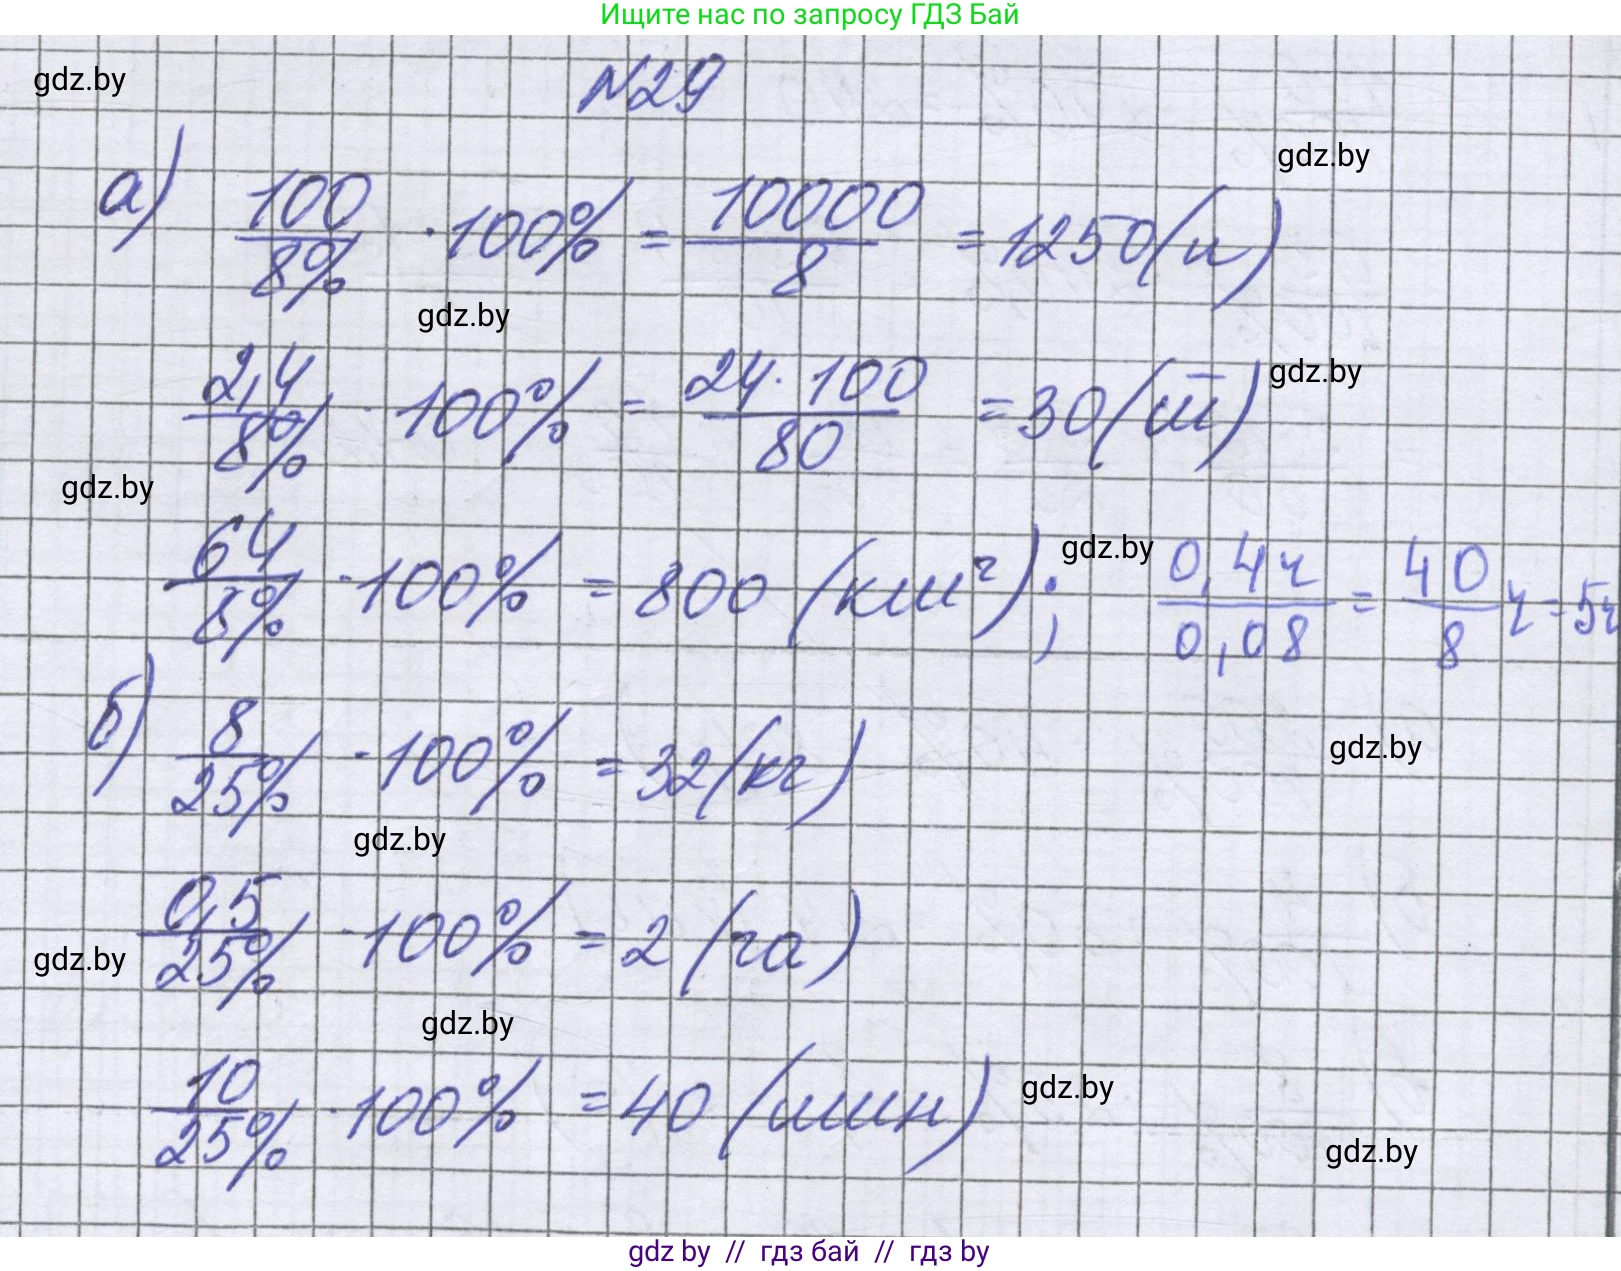 Ищите нас по запросу ГДЗ Бай
gdz.by
№29
gdz.by
а) 100/8% · 100% = 10000/8 = 1250 (м)
gdz.by
2,4/8% · 100% = 24·100/80 = 30 (т)
gdz.by
gdz.by
64/8% · 100% = 800 (км²); 0,4ч/0,08 = 40/8 ч = 5ч
gdz.by
б) 8/25% · 100% = 32 (кг)
gdz.by
gdz.by
0,5/25% · 100% = 2 (га)
gdz.by
gdz.by
10/25% · 100% = 40 (мин)
gdz.by
gdz.by
gdz by // гдз бай // гдз by